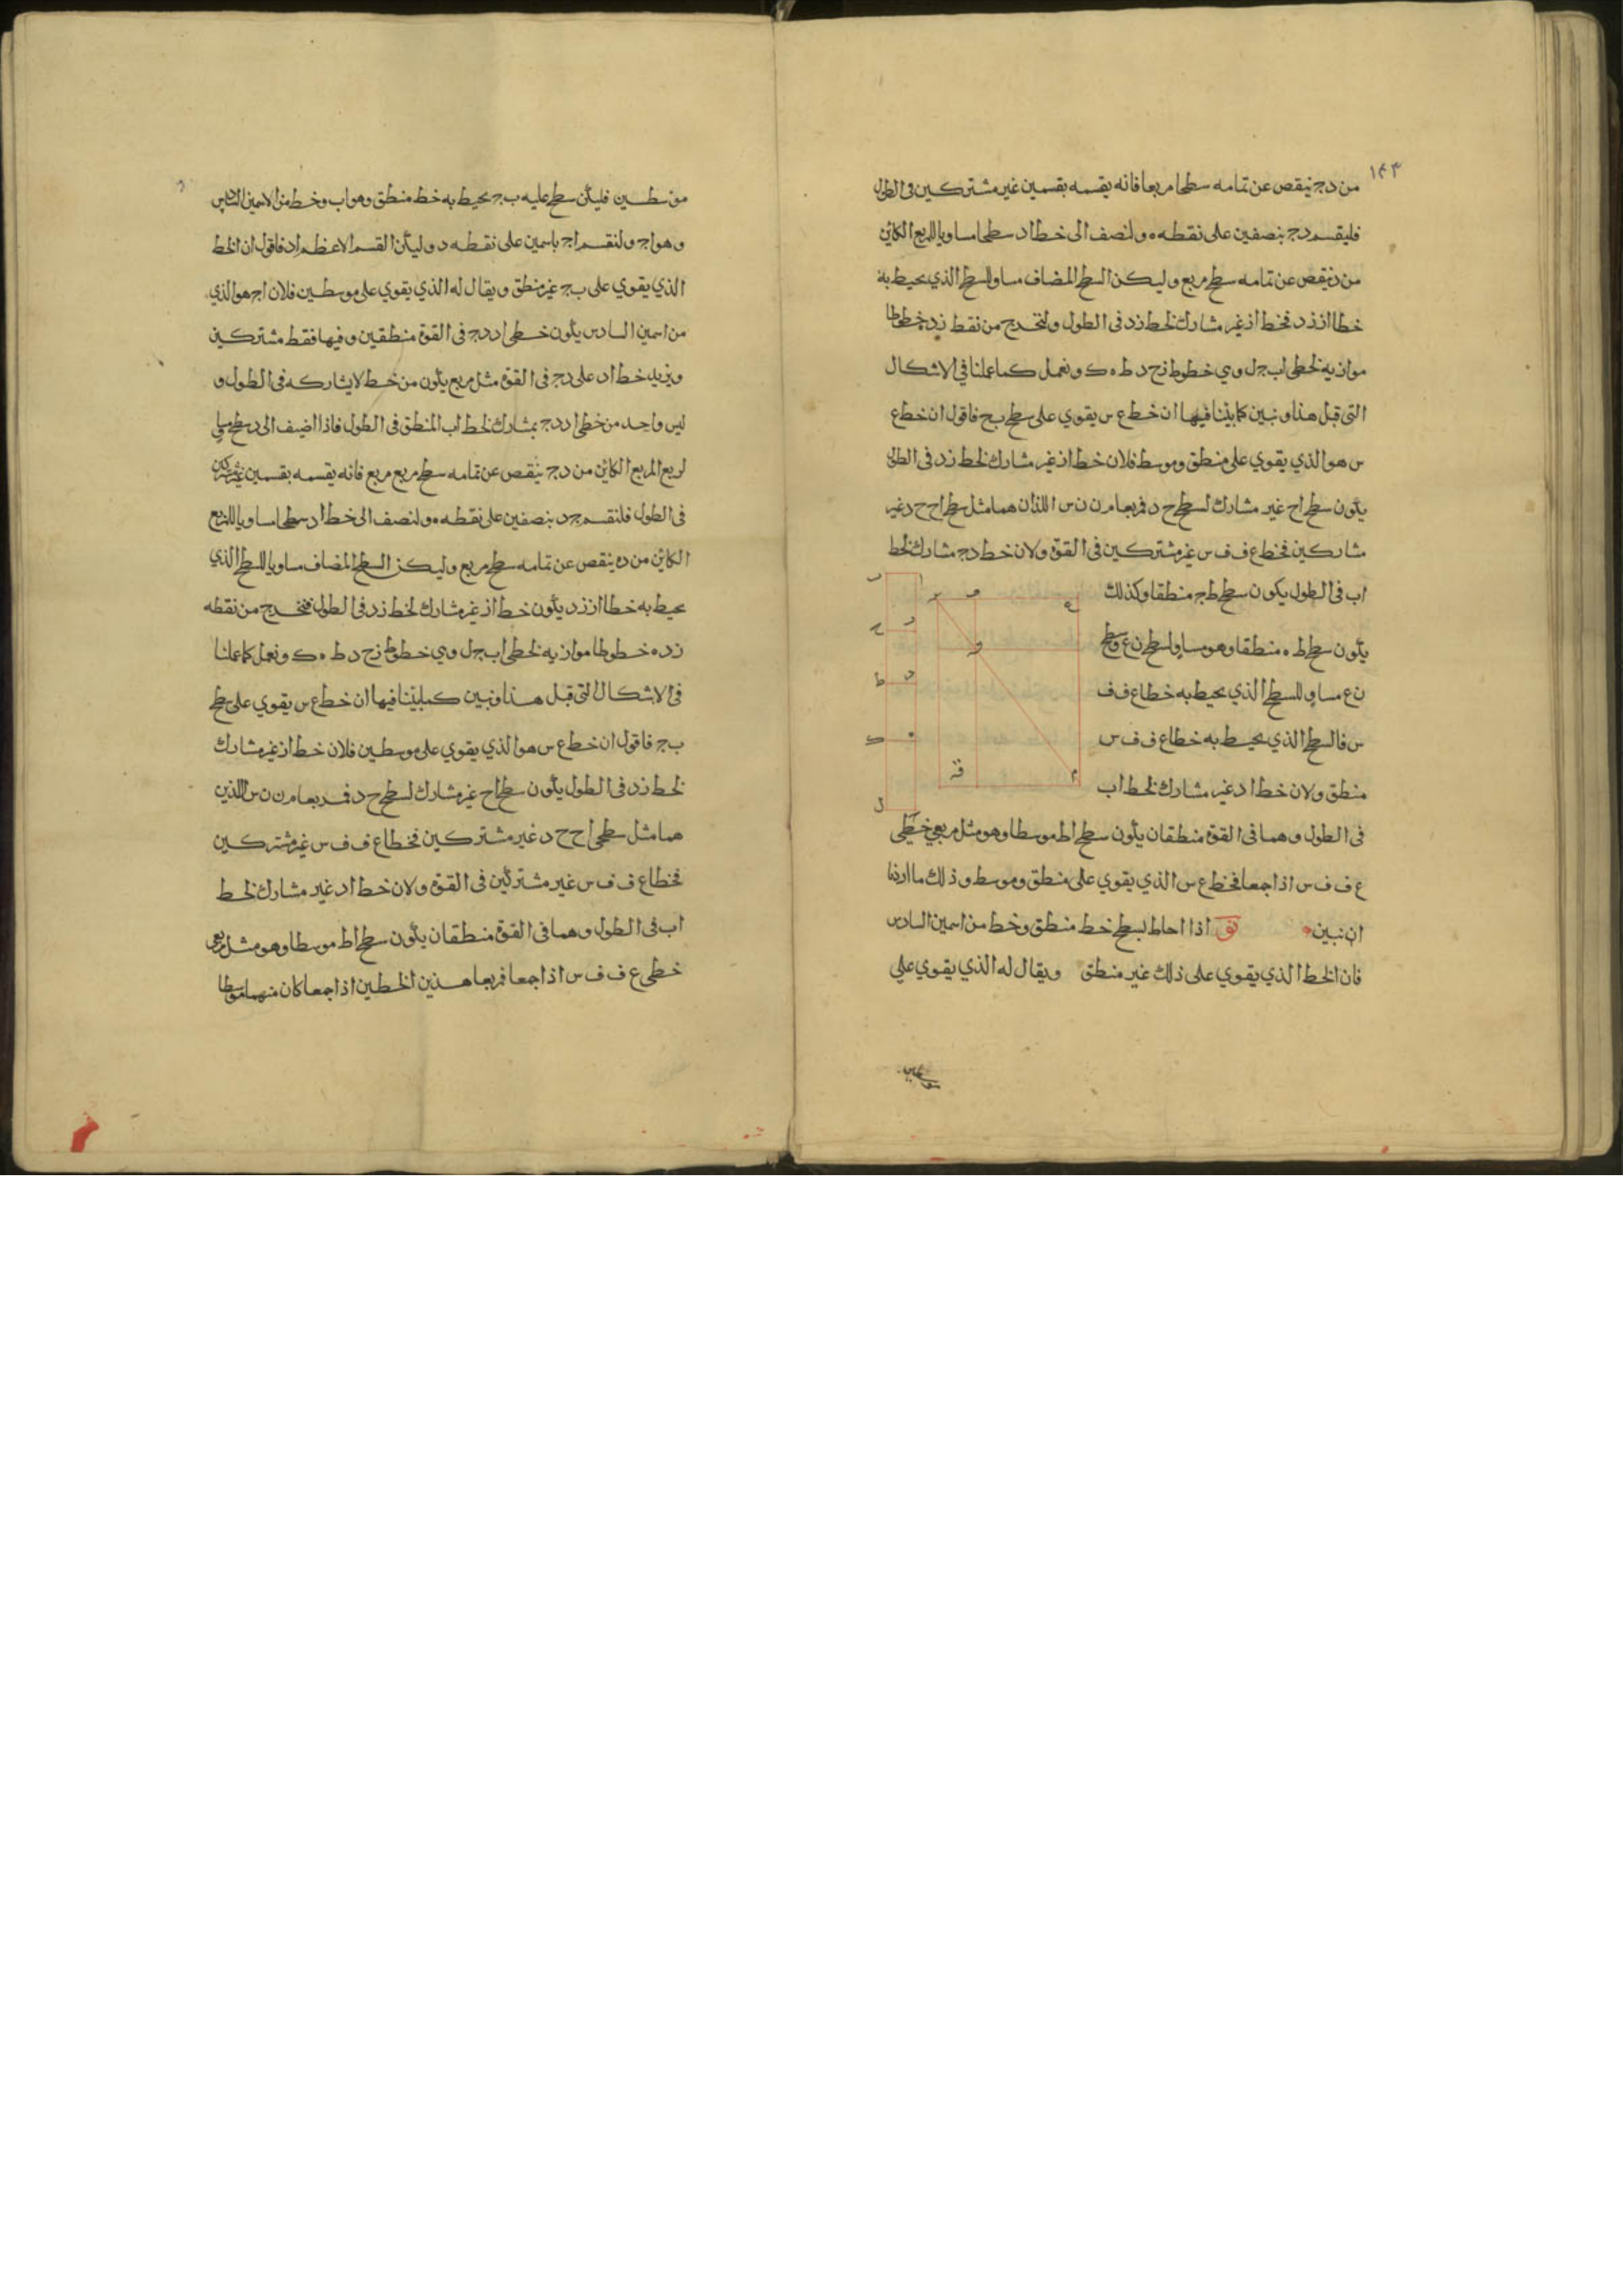 ١٤٣
من دج ينقص عن تمامه سطحا مربعا فانه يقسمه بقسمين غير مشتركين فى الطول
فليقسم دج بنصفين على نقطه ه ولنضف الى خط اد سطحا مساويا للمربع الكائن
من ده ينقص عن تمامه سطح مربع وليكن السطح المضاف مساو للسطح الذي يحيط به
خطا از زد فخط از غير مشارك لخط زد فى الطول ولنخرج من نقط زده خطوطا
موازيه لخطى اب جل وهي خطوط زح دط ه ك ونعمل كما عملنا في الاشكال
التى قبل هذا ونبين كما بيّنا فيها ان خط ع س يقوي على سطح بج فاقول ان خط ع
س هو الذي يقوي على منطق وموسط فلان خط از غير مشارك لخط زد فى الطول
يكون سطح اح غير مشارك لسطح ح د فمربعا م ن ن س اللذان هما مثل سطح اح ح د غير
مشاركين فخط ع ف ف س غير مشتركين فى القوة ولان خط دج مشارك لخط
اب فى الطول يكون سطح طج منطقا وكذلك
يكون سطح ط ه منطقا وهو مساو لسطح ن ع وسطح
ن ع مساو للسطح الذي يحيط به خطا ع ف ف
س فالسطح الذي يحيط به خطا ع ف ف س
منطق ولان خط اد غير مشارك لخط اب
فى الطول وهما فى القوة منطقان يكون سطح اط موسطا وهو مثل مربعي خطى
ع ف ف س اذا جمعا فخط ع س الذي يقوي على منطق وموسط وذلك ما اردنا
ان نبين اذا احاط بسطح خط منطق وخط من اسمين السادس
فان الخط الذي يقوي على ذلك غير منطق ويقال له الذي يقوي على
موسطين
موسطين فليكن سطح عليه ب ج يحيط به خط منطق وهو اب وخط من الاسمين السادس
وهو اج ولنقسم اج باسمين على نقطه د وليكن القسم الاعظم اد فاقول ان الخط
الذي يقوي على ب ج غير منطق ويقال له الذي يقوي على موسطين فلان اج هو الذي
من اسمين السادس يكون خطى اد دج فى القوة منطقين وفيها فقط مشتركين
ويزيد خط اد على دج فى القوة مثل مربع يكون من خط لا يشاركه فى الطول و
ليس واحد من خطى اد دج بمشارك لخط اب المنطق فى الطول فاذا اضيف الى اد سطح مساو
لربع المربع الكائن من دج ينقص عن تمامه سطح مربع مربع فانه يقسمه بقسمين غير مشتركين
فى الطول فلنقسم ج د بنصفين على نقطه ه ولنضف الى خط اد سطحا مساويا للمربع
الكائن من ده ينقص عن تمامه سطح مربع وليكن السطح المضاف مساويا للسطح الذي
يحيط به خطا از زد يكون خط از غير مشارك لخط زد فى الطول فنخرج من نقطه
زده خطوطا موازيه لخطى اب جل وهي خطوط زح دط ه ك ونعمل كما عملنا
فى الاشكال التى قبل هذا ونبين كما بيّنا فيها ان خط ع س يقوي على سطح
ب ج فاقول ان خط ع س هو الذي يقوي على موسطين فلان خط از غير مشارك
لخط زد فى الطول يكون سطح اح غير مشارك لسطح ح د فمربعا م ن ن س اللذين
هما مثل سطحى اح ح د غير مشتركين فخطا ع ف ف س غير مشتركين
فخطا ع ف ف س غير مشتركين فى القوة ولان خط اد غير مشارك لخط
اب فى الطول وهما فى القوة منطقان يكون سطح اط موسطا وهو مثل مربعى
خطى ع ف ف س اذا جمعا فمربعا هذين الخطين اذا جمعا كان منهما موسطا